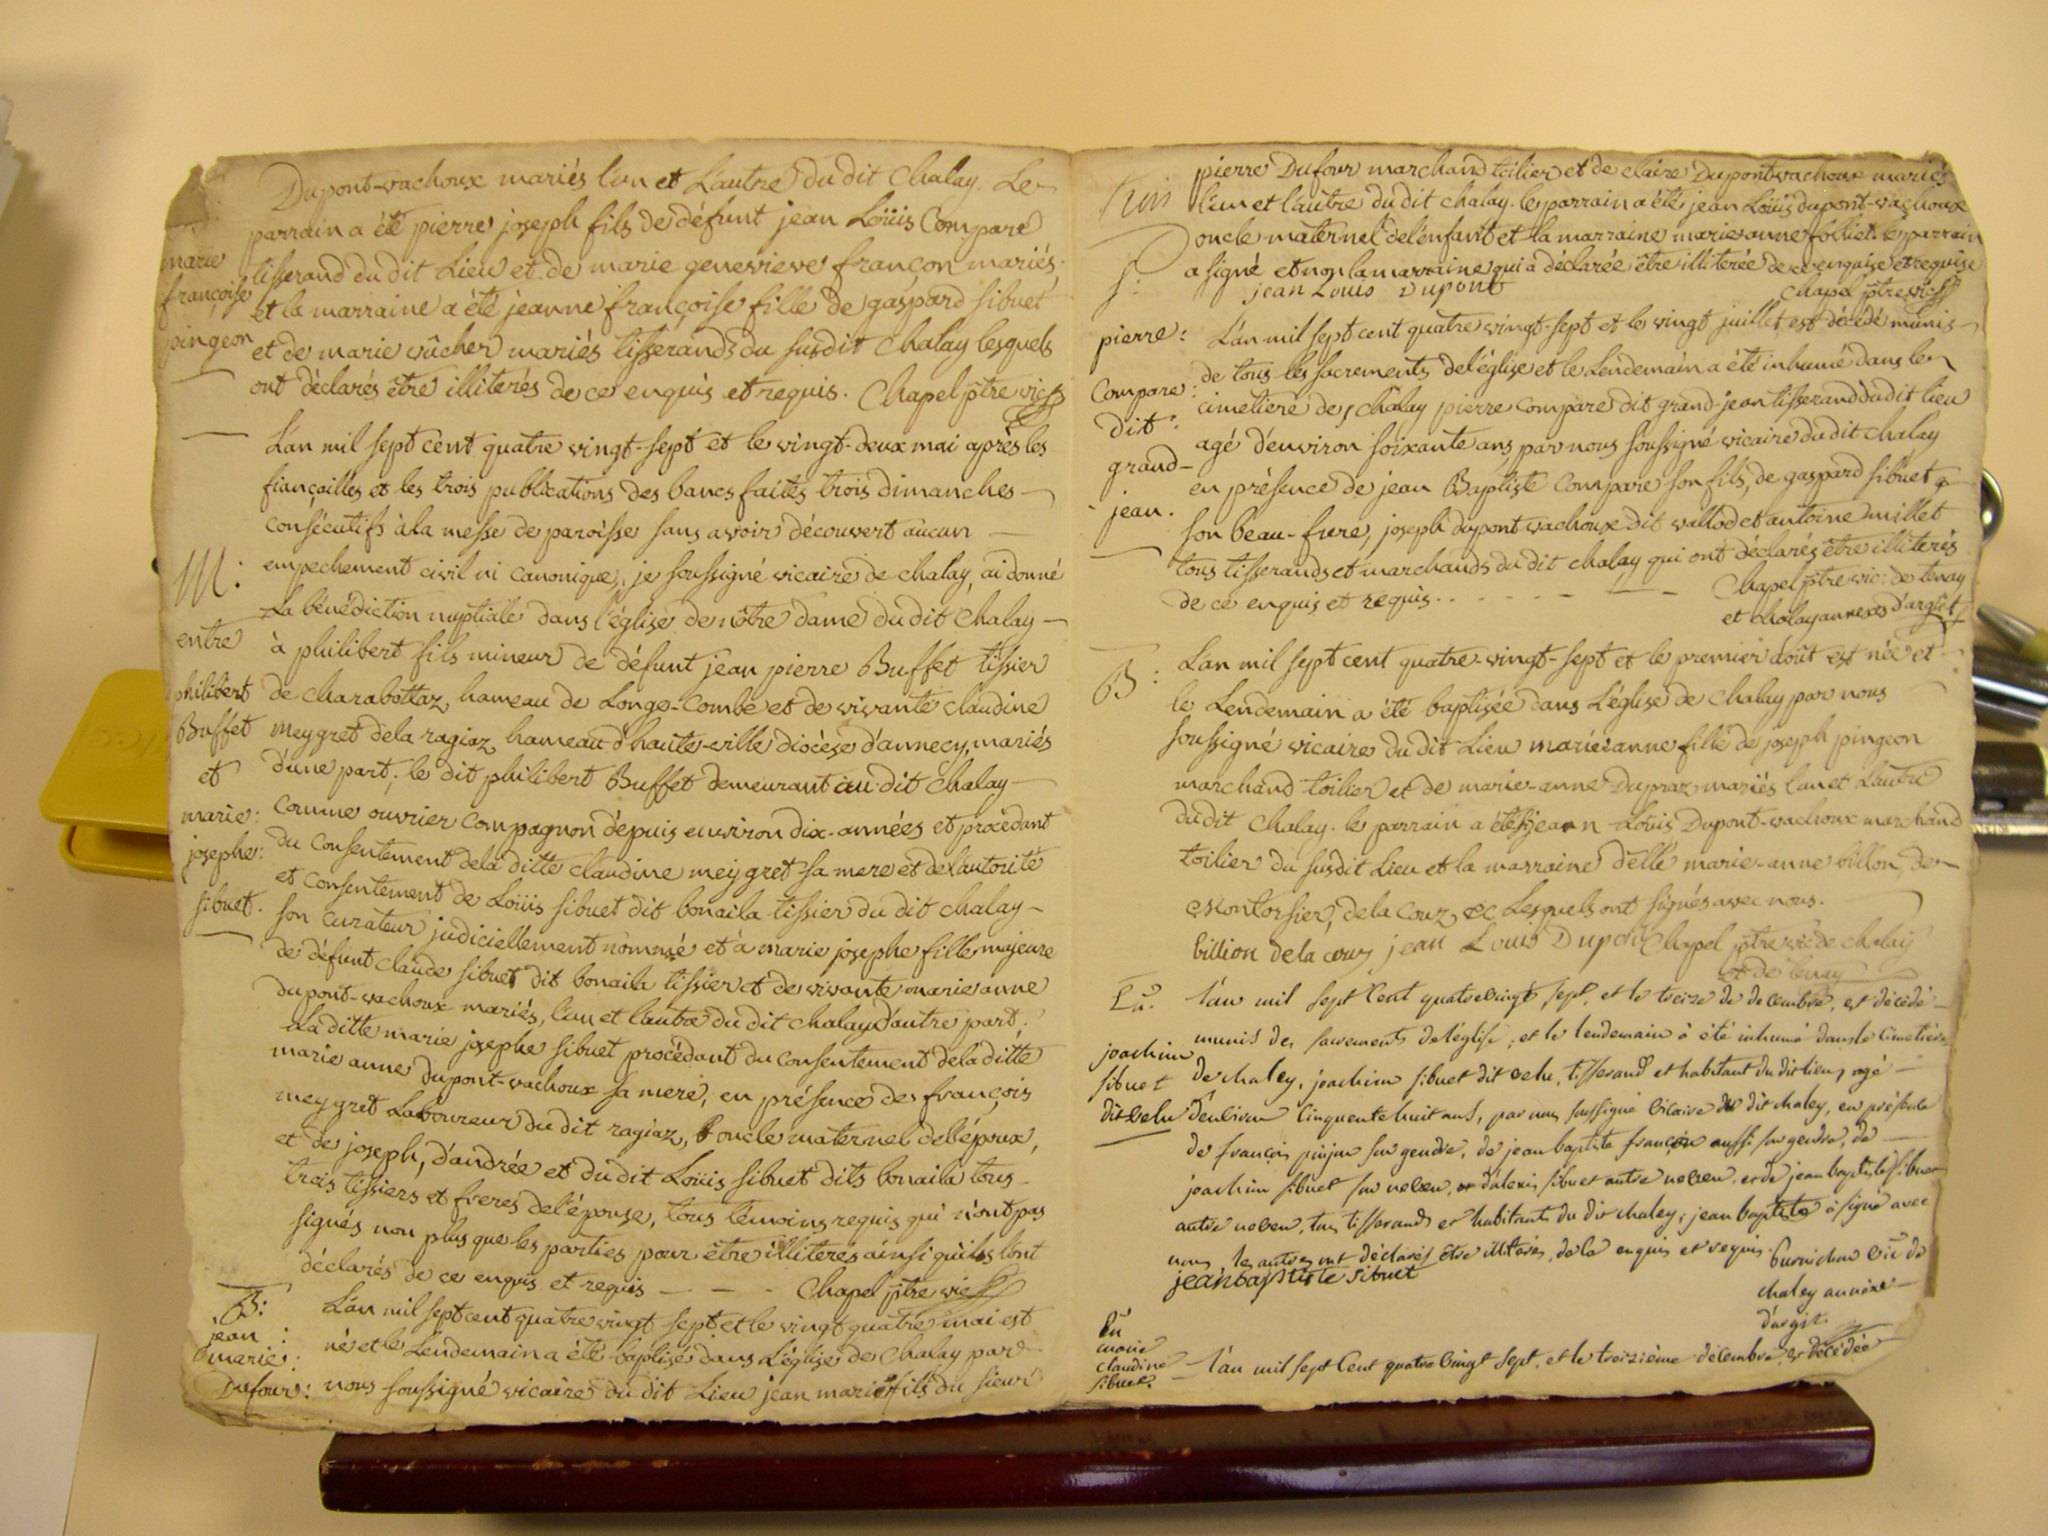 Dupont-vachoux mariés l'un et L'autre du dit Chalay. Le
parrain a été pierre joseph fils de défunt jean Loüis Compare
tisserand du dit Lieu et de marie genevieve françon mariés.
et la marraine a été jeanne françoise fille de gaspard sibuet
et de marie vûcher mariés tisserands du susdit Chalay lesquels
ont déclarés être illiterés de ce enquis et requis. Chapel ptre vic
marie
françoise
pingeon
L'an mil sept cent quatre vingt-sept et le vingt-deux mai après les
fiançailles et les trois publications des bancs faites trois dimanches
consécutifs à la messe de paroisse sans avoir découvert aucun
empechement civil ni canonique, je soussigné vicaire de chalay, ai donné
La bénédiction nuptiale dans l'église de nôtre dame du dit Chalay
à philibert fils mineur de défunt jean pierre Buffet tissier
de charabottaz, hameau de Longe-Combe et de vivante claudine
meygret de la ragiaz hameau d'haute-ville diocèse d'annecy, mariés
d'une part; le dit philibert Buffet demeurant au dit Chalay
comme ouvrier compagnon depuis environ dix-années et procédant
du consentement de la ditte claudine meygret sa mere et de l'autorité
et consentement de Loüis sibuet dit bonaila tissier du dit chalay
son curateur judiciellement nommé et à marie josephe fille majeure
de défunt claude sibuet dit bonaila tissier et de vivante marie anne
dupont-vachoux mariés, l'un et l'autre du dit chalay d'autre part;
La ditte marie josephe sibuet procédant du consentement de la ditte
marie anne dupont-vachoux sa mere, en présence de françois
meygret Laboureur du dit ragiaz, oncle maternel de l'époux,
et de joseph, d'andrée et du dit Loüis sibuet dits bonaila tous
trois tissiers et freres de l'épouse, tous témoins requis qui n'ont pas
signés non plus que les parties pour être illiterés ainsi qu'ils l'ont
déclarés de ce enquis et requis - - - Chapel ptre vic
M:
entre
philibert
Buffet
et
marie:
josephe:
sibuet.
B:
jean:
marie:
Dufour:
L'an mil sept cent quatre vingt sept et le vingt quatre mai est
né et le Lendemain a été baptisé dans L'église de Chalay par
nous soussigné vicaire du dit Lieu jean marie fils du sieur
pierre Dufour marchand toilier et de claire Dupont-vachoux mariés
l'un et l'autre du dit chalay. le parrain a été jean Loüis dupont-vachoux
oncle maternel de l'enfant et la marraine marie anne folliet. le parrain
a signé et non la marraine qui a déclarée être illiterée de ce enquise et requise
jean Louis Dupont Chapel ptre vic
S:
pierre:
Compare:
dit:
grand-
jean.
L'an mil sept cent quatre vingt-sept et le vingt juillet est décédé munis
de tous les sacrements de l'église et le Lendemain a été inhumé dans le
cimetiere de chalay pierre compare dit grand-jean tisserand du dit lieu
agé d'environ soixante ans par nous soussigné vicaire du dit chalay
en présence de jean Baptiste Compare son fils, de gaspard sibuet
son beau-frere, joseph dupont vachoux dit vallod et antoine millet
tous tisserands et marchands du dit chalay qui ont déclarés être illiterés
de ce enquis et requis. . . . . - - Chapel ptre vic: de tenay
et chalay annexes d'argit
B:
L'an mil sept cent quatre-vingt-sept et le premier août est née et
le Lendemain a été baptisée dans L'église de chalay par nous
soussigné vicaire du dit Lieu marie anne fille de joseph pingeon
marchand toilier et de marie-anne Dupraz mariés l'un et L'autre
du dit Chalay. le parrain a été jean Loüis Dupont-vachoux marchand
toilier du susdit Lieu et la marraine d'elle marie-anne billon, de
Montorsier, de la couz &c Lesquels ont signés avec nous.
billion de la couz jean Louis Dupon Chapel ptre vic de chalay
et de tenay
joachim
sibuet
dit velu
L'an mil sept Cent quatrevingt sept, et le treize de decembre, est décédé
munis des sacrements de l'église, et le lendemain à été inhumé dans le Cimetière
de chaley, joachim sibuet dit velu, tisserand et habitant du dit lieu, agé
d'environ Cinquente huit ans, par nous soussigné vicaire du dit chaley, en présence
de françois pinjon son gendre, de jean baptiste françon aussi son gendre, de
joachim sibuet son neveu, d'alexis sibuet autre neveu, et de jean baptiste sibuet
autre neveu, tous tisserands et habitants du dit chaley, jean baptiste à signé avec
nous les autres ont déclarés être illiterés, de ce enquis et requis. Burnichon vic de
jean baptiste sibuet
chaley annexe
d'argit.
marie
claudine
sibuet.
L'an mil sept Cent quatre vingt sept, et le troisième décembre, est décédée